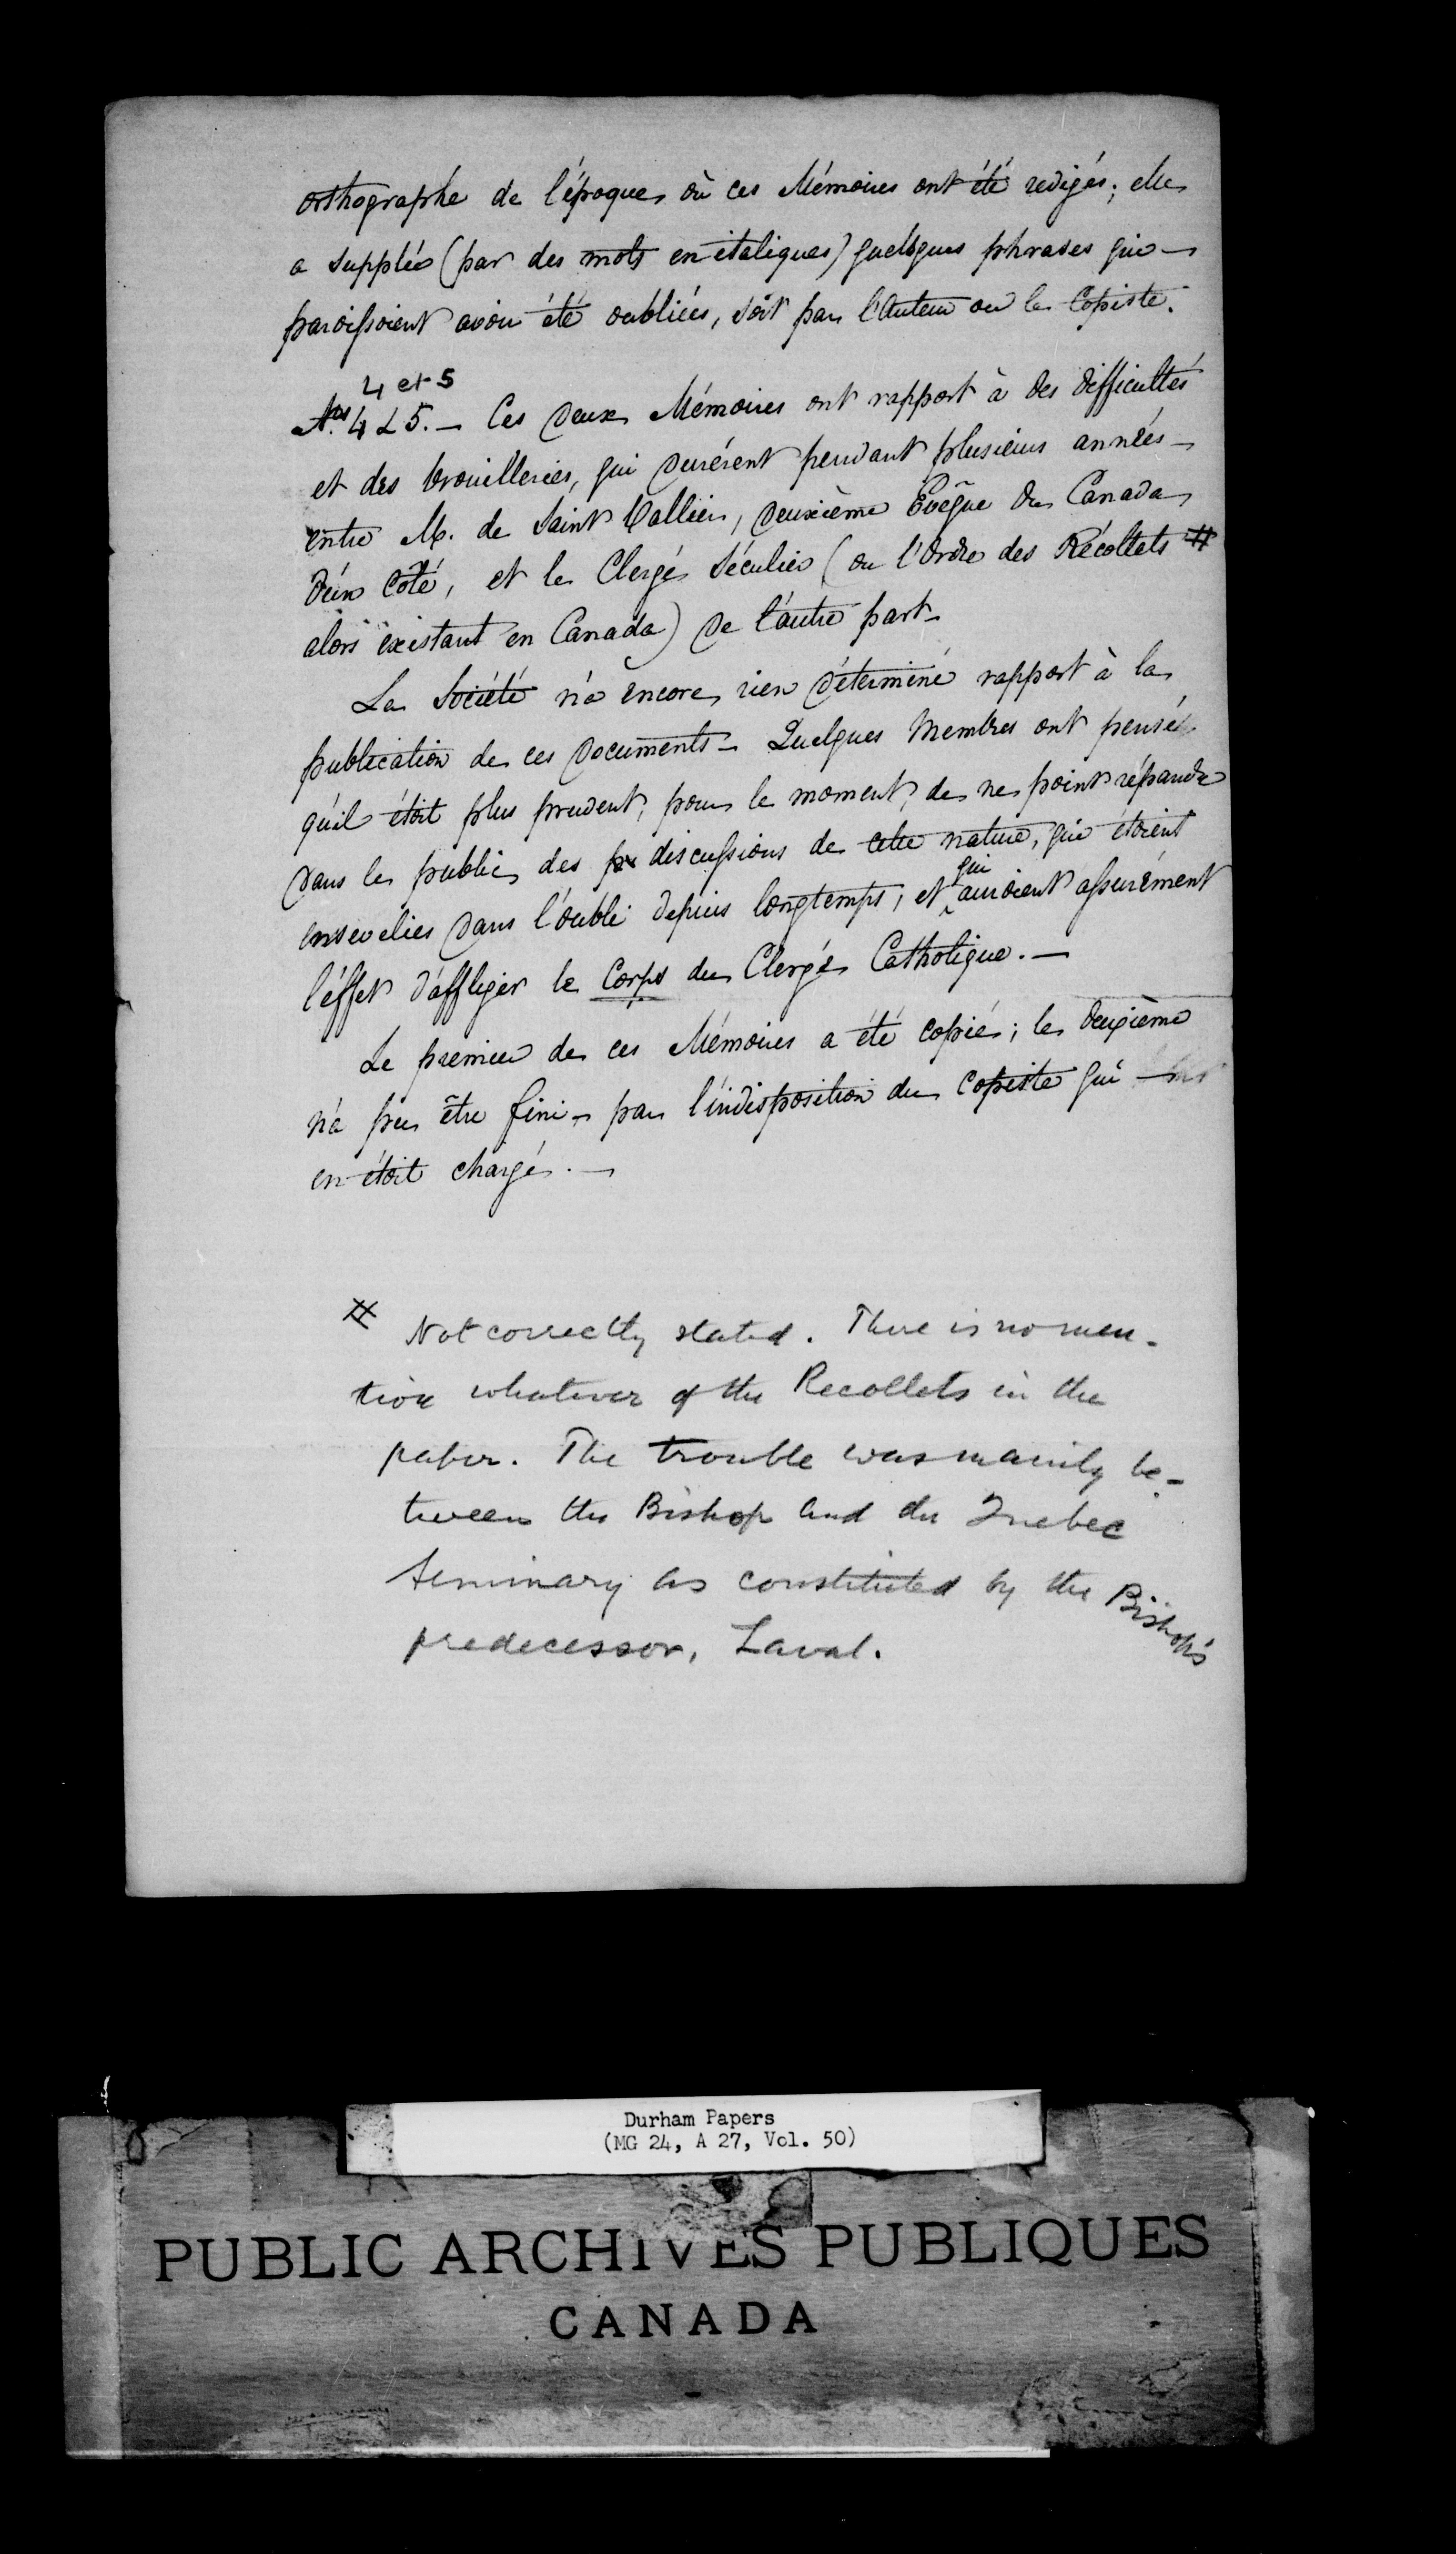 orthographe de l'époque où ces Mémoires ont été redigés; elle
a supplée (par des mots en italiques) quelques phrases qui
paroissoient avoir été oubliées, soit par l'Auteur ou le Copiste.
4 et 5
Nos. 4 & 5. — Ces deux Mémoires ont rapport à des difficultés
et des brouilleries, qui durérent pendant plusieurs années
entre M. de Saint Vallier, deuxième Evêque du Canada
d'un côté, et le Clergé Séculier (ou l'Ordre des Récollets #
alors existant en Canada) de l'autre part.
La Société n'a encore rien déterminé rapport à la
publication de ces documents — Quelques Membres ont pensé
qu'il étoit plus prudent, pour le moment, de ne point répandre
dans le public des discussions de cette nature, qui étoient
ensevelies dans l'oubli depuis longtemps, et qui auroient assurément
l'effet d'affliger le Corps du Clergé Catholique. —
Le premier de ces Mémoires a été copié; le deuxième
n'a pu être fini par l'indisposition du Copiste qui
en étoit chargé. —
# Not correctly stated. There is no men-
tion whatever of the Recollets in the
paper. The trouble was mainly be-
tween the Bishop and the Quebec
Seminary as constituted by the Bishop's
predecessor, Laval.
Durham Papers
(MG 24, A 27, Vol. 50)
PUBLIC ARCHIVES PUBLIQUES
CANADA